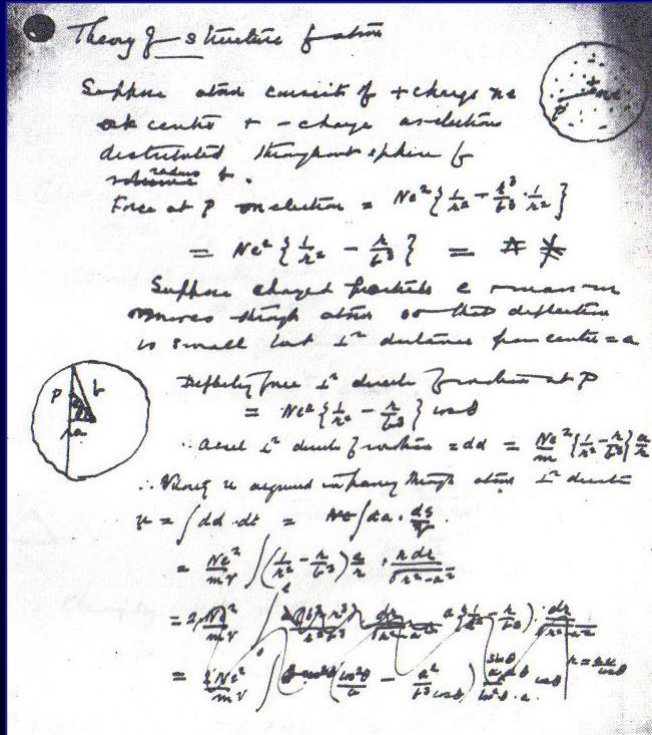 Theory of structure of atom
Suppose atom consists of + charge ne
at centre + - charge as electrons
distributed throughout sphere of
radius b.
Force at P on electron = Ne² { 1/r² - r³/b³ · 1/r² }
= Ne² { 1/r² - r/b³ } =
Suppose charged particle e mass m
moves through atom so that deflection
is small but ⊥ʳ distance from centre = a
Deflecting force ⊥ʳ direction of motion at P
= Ne² { 1/r² - r/b³ } cos θ
∴ accel ⊥ʳ direction of motion = dd = Ne²/m { 1/r² - r/b³ } a/r
∴ Velocity u acquired in passing through atom ⊥ʳ direction
u = ∫ dd · dt = ds/v
= Ne²/mv ∫ ( 1/r² - r/b³ ) a/r · r dr/√r²-a²
= 2 Ne²/mv ∫ a ( 1/r² - r/b³ ) · dr/√r²-a²
= 2Ne²/mv ∫
P b
a
P + ne